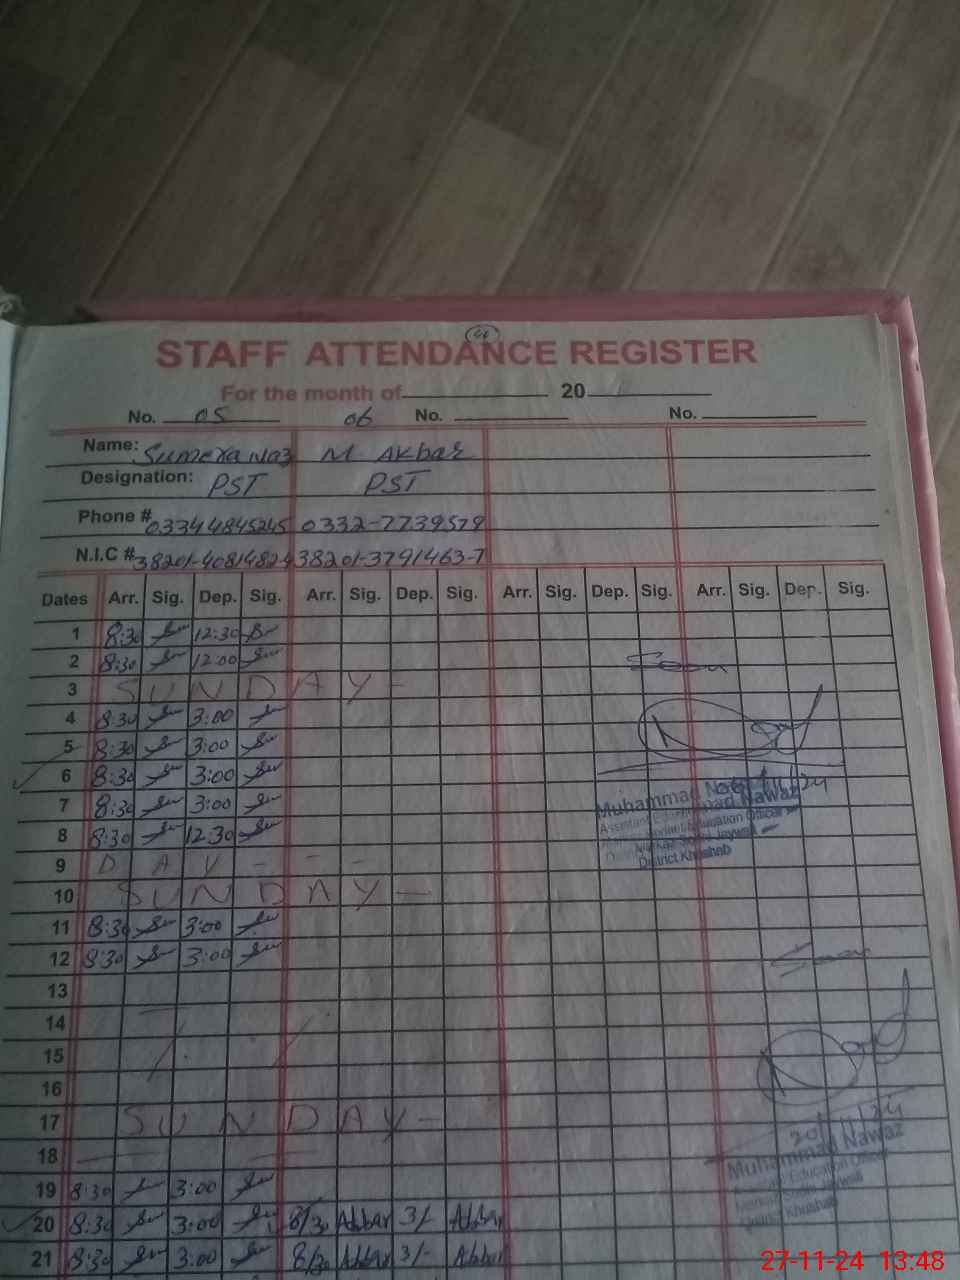 46
STAFF ATTENDANCE REGISTER
For the month of 20
No. 05 06 No. No.
Name: Sumera Naz M. Akbar
Designation: PST PST
Phone # 03344845245 0332-7739579
N.I.C # 38201-4081482 38201-3791463-7
Dates Arr. Sig. Dep. Sig. Arr. Sig. Dep. Sig. Arr. Sig. Dep. Sig. Arr. Sig. Dep. Sig.
1 8:30 12:30
2 8:30 12:00
3 SUNDAY -
4 8:30 3:00
5 8:30 3:00
6 8:30 3:00
7 8:30 3:00
8 8:30 12:30
9 DAY - - -
10 SUNDAY -
11 8:30 3:00
12 8:30 3:00
13
14
15
16
17 SUNDAY -
18
19 8:30 3:00
20 8:30 3:00 8/30 Akbar 3/- Akbar
21 8:30 3:00 8/30 Akbar 3/- Akbar
Muhammad Nawaz
Assistant Education Officer
District Khushab
20/11/24
Muhammad Nawaz
Assistant Education Officer
District Khushab
27-11-24 13:48